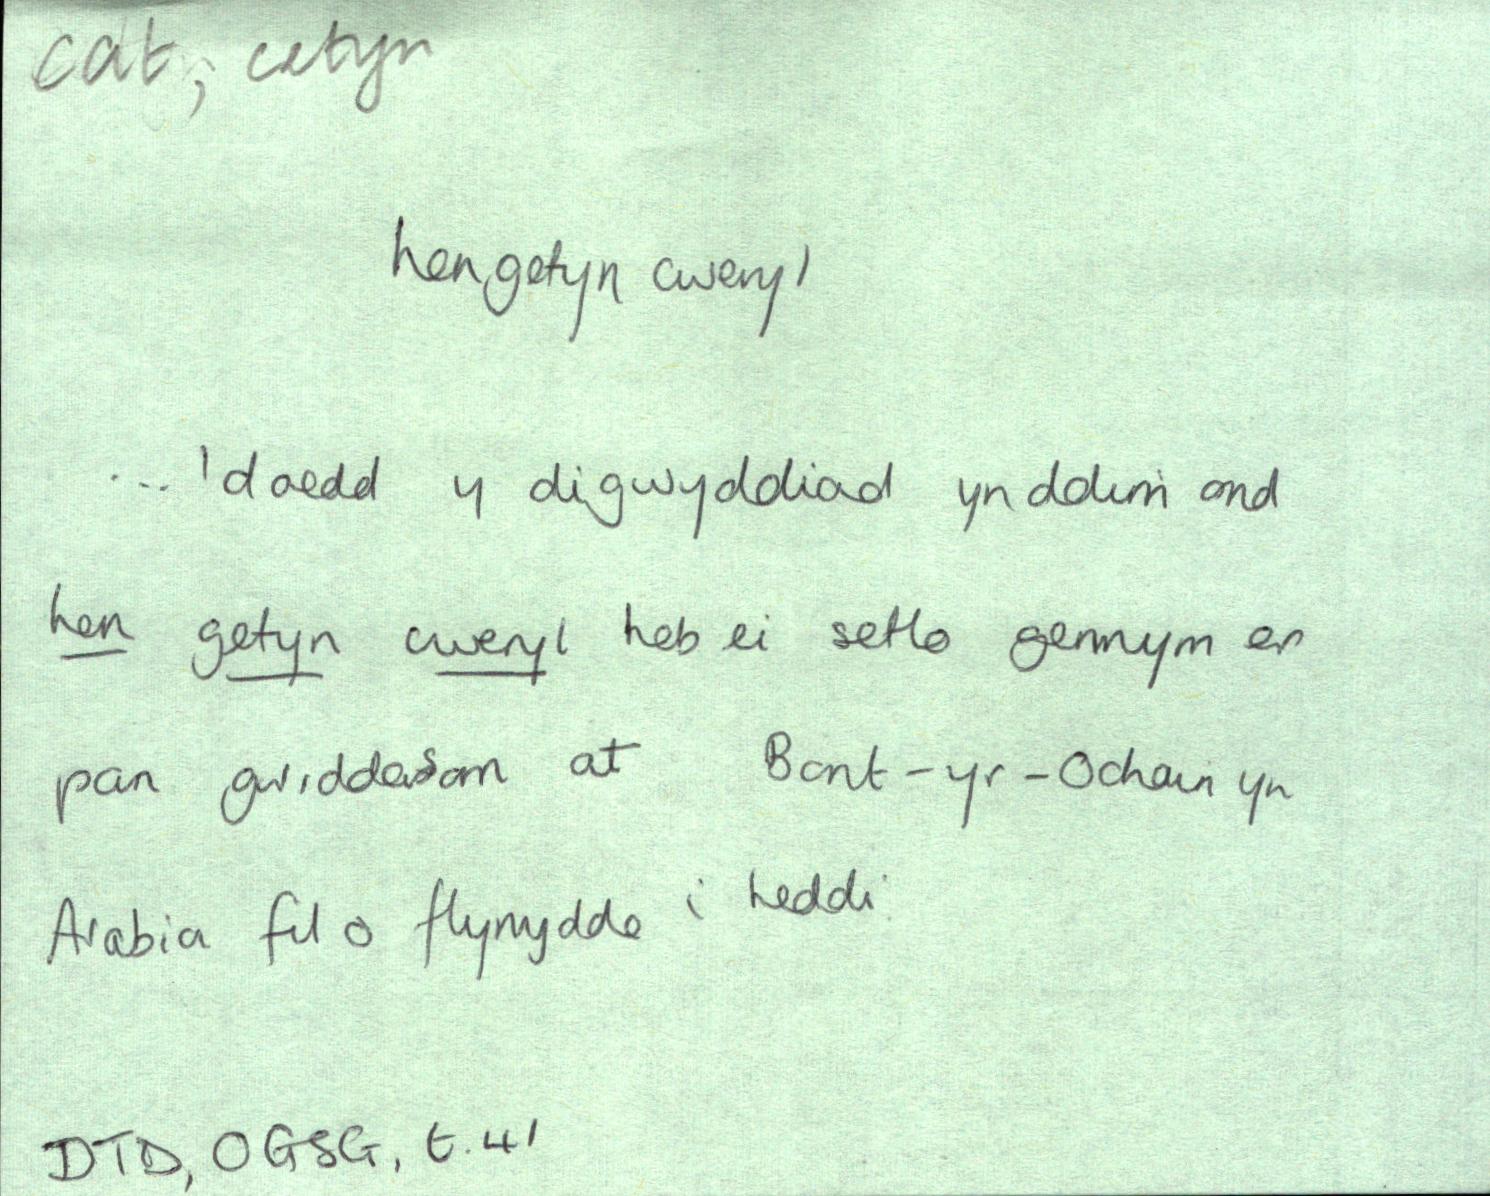 cat, cetyn
hen getyn cweryl
... 'doedd y digwyddiad yn ddim ond
hen getyn cweryl heb ei setlo gennym er
pan gwiddasom at Bont-yr-Ochain yn
Arabia fil o flynydde i heddi
DTD, OGSG, t.41